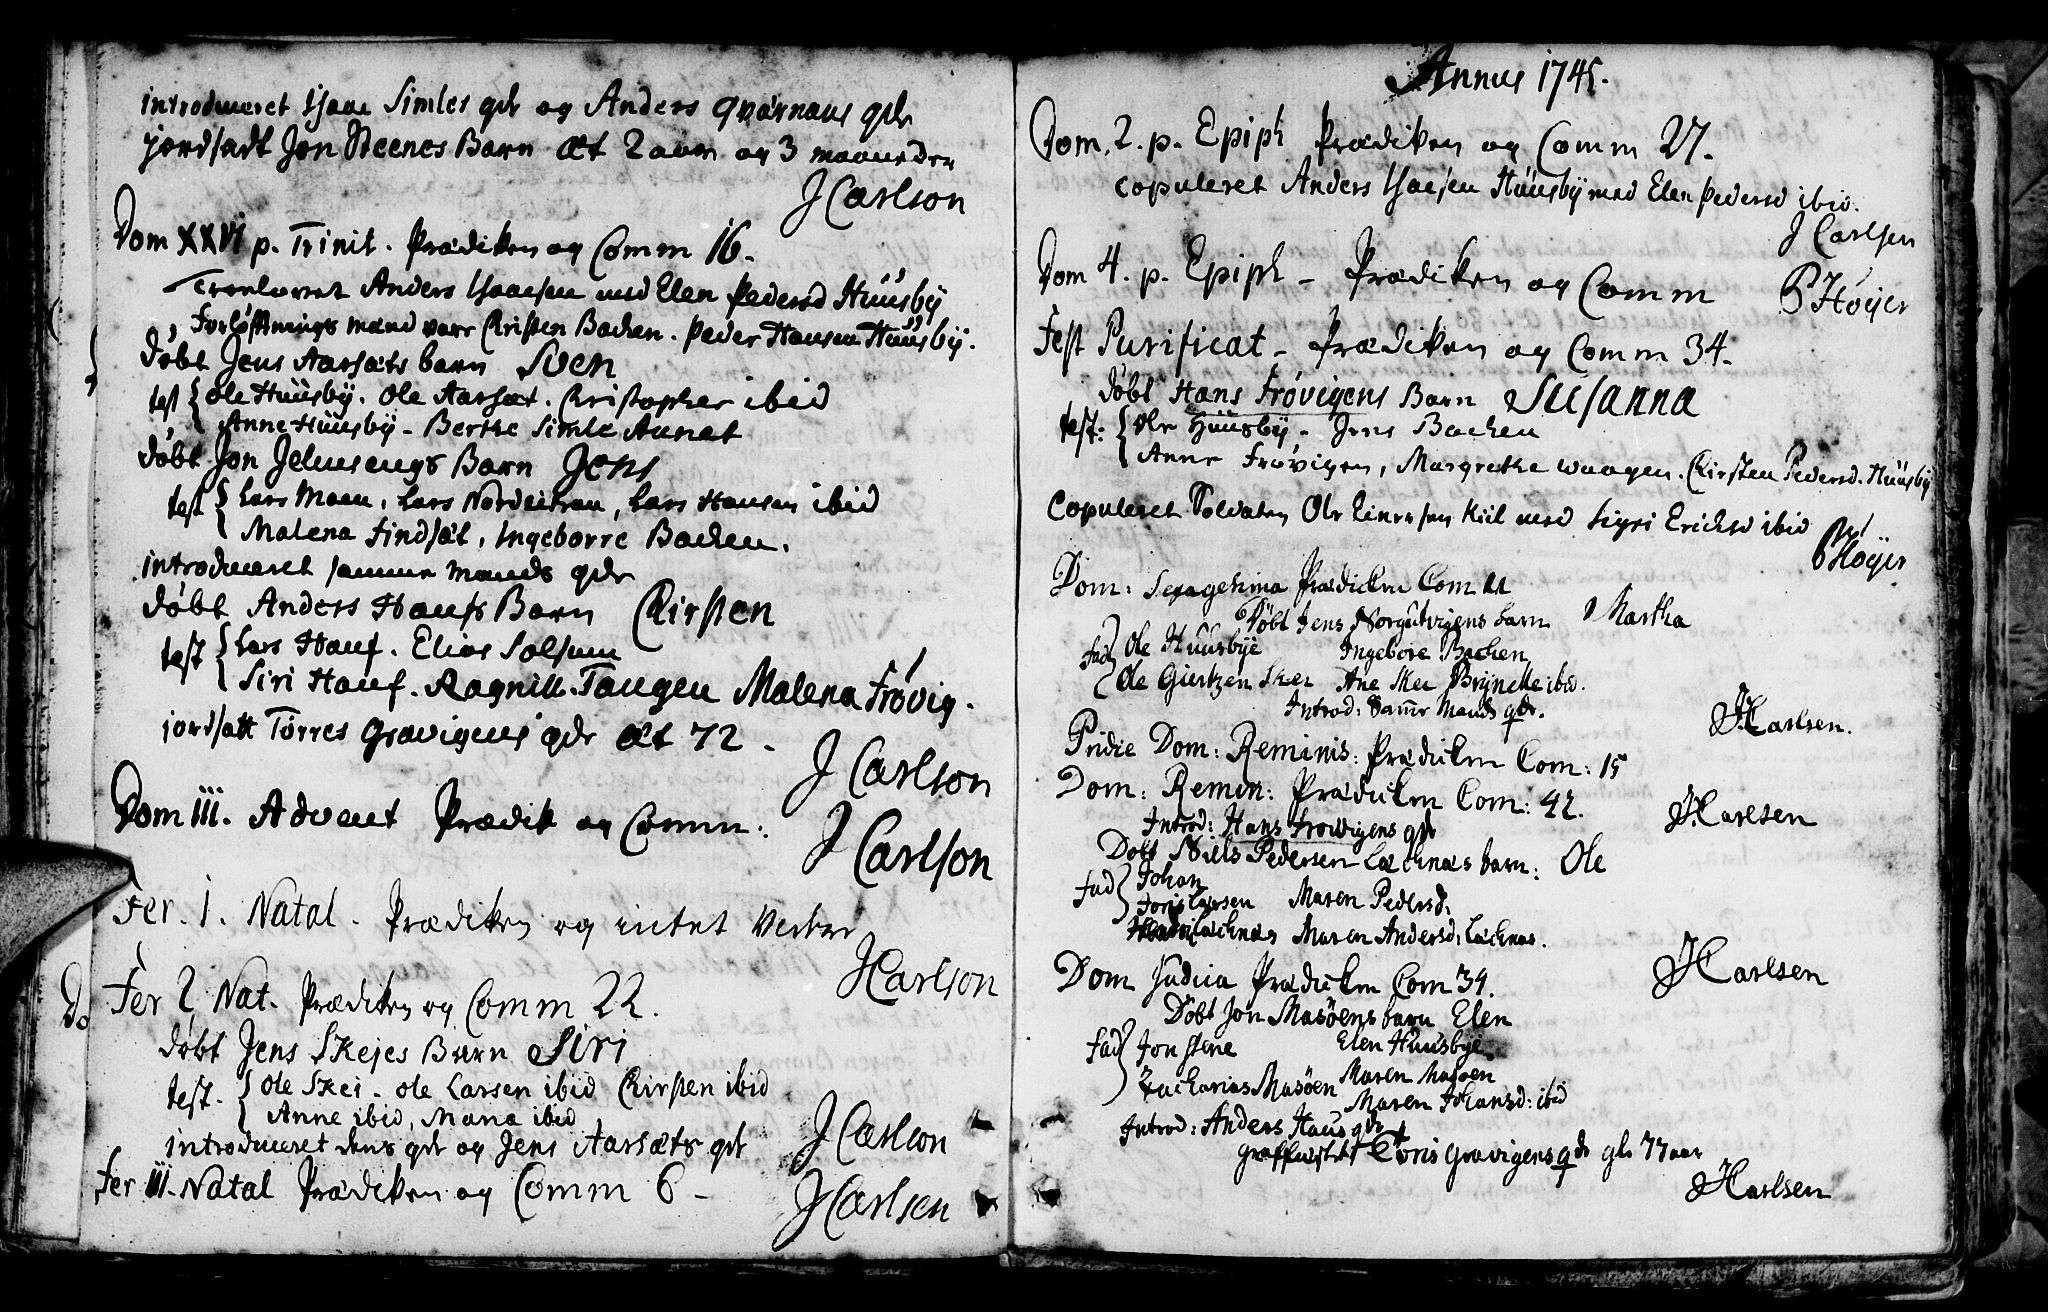 introduceret Isaac Simles qde og Anders Qvarnaus qde
jordsadt Jon Steenes Barn Æt 2 aar og 3 maaneder
J Carlson
Dom XXVI p. Trinit. Prædiken og Comm 16.
Troelovet Anders Isaacsen med Elen Pedersd Huusby
Forløftnings mænd varr Christen Bachen. Peder Hansen Huusby.
døbt Jens Aarsæts barn Sven
test { Ole Huusby. Ole Aarsæt. Christopher ibid
Anne Huusby - Berthe Simle Aunet
døbt Jon Jelmsengs Barn Jens
test { Lars Moen, Lars Nordeitran, Lars Hansen ibid
Malena Findsæt, Ingeborre Bachen.
introduceret samme Mands qde
døbt Anders Haufs Barn Chirsten
test { Lars Hauf. Elias Solsum
Siri Hauf. Ragnill Tangen Malena Frøvig.
jordsatt Tørres Gravigens qde Æt 72.
J Carlson
Dom III. Advent Prædik og Comm:
J Carlson
Fer. 1. Natal. Prædiken og intet Verker
J Carlson
Do
Fer 2 Nat. Prædiken og Comm 22.
døbt Jens Skejes Barn Siri
test. { Ole Skei. Ole Larsen ibid Chirsten ibid
Anne ibid, Mana ibid
introduceret dens qde og Jens Aarsæts qde
J Carlson
Fer III. Natal Prædiken og Comm 6 -
J Carlsen
Annus 1745.
Dom. 2. p. Epiph Prædiken og Comm 27.
Copuleret Anders Isacsen Huusby med Elen Pedersd ibid.
J Carlsen
Dom 4. p. Epiph - Prædiken og Comm
P Høyer
Fest Purificat - Prædiken og Comm 34.
døbt Hans Frøvigens Barn Susanna
test: { Ole Huusby - Jens Bachen
Anne Frøvigen, Margrethe Waagen. Chirsten Pedersd. Huusby
Copuleret Soldaten Ole Einersen Kiil med Sigri Ericksd ibid
P Høyer
Dom: Sexagesima Prædicken Com 11
Døbt Jens Norgutvigens barn Martha
Fad } Ole Huusbye Ingebore Bachen
Ole Giertzen Skei Ane Skei Brynelle ibid.
Introd: Samme Mands qde.
J Carlsen.
Pridie Dom: Reminis: Prædicken Com: 15
Dom: Remin: Prædicken Com: 42.
J. Carlsen
Introd: Hans Frowigens qde
Døbt Niels Pedersen Lachnæs barn: Ole
Fad } Johan
Joris Larsen Maren Pedersd:
Lachnæs Maren Andersd: Lachnæs.
J Carlsen
Dom Judica Prædicken Com 34.
Døbt Jon Masøens barn Elen
Fad } Jon Stene Elen Huusbye
Zacharias Masøen Maren Masøen
Maren Johansd: ibid
Introd: Anders Haus qde
graffæstet Toris Gravigens qde gl: 77 aar
J Carlsen